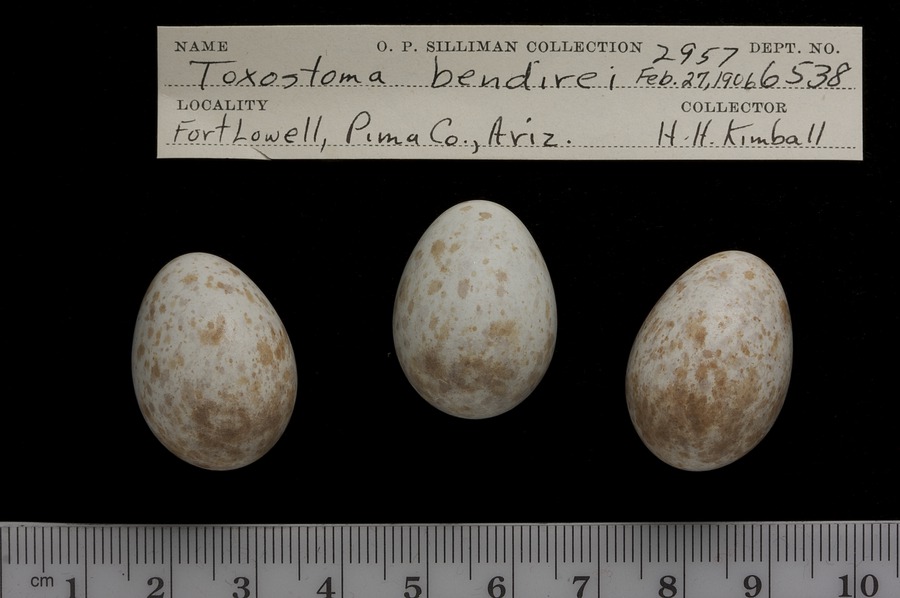 NAME O. P. SILLIMAN COLLECTION 2957 DEPT. NO.
Toxostoma bendirei Feb. 27, 1906 6538
LOCALITY COLLECTOR
Fort Lowell, Pima Co., Ariz. H. H. Kimball
cm 1 2 3 4 5 6 7 8 9 10